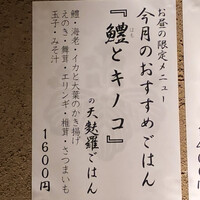 お昼の限定メニュー
今月のおすすめごはん
『鱧とキノコ』
はも
の天麩羅ごはん
鱧・海老・イカと大葉のかき揚げ
えのき・舞茸・エリンギ・椎茸・さつまいも
玉子・みそ汁
1600円